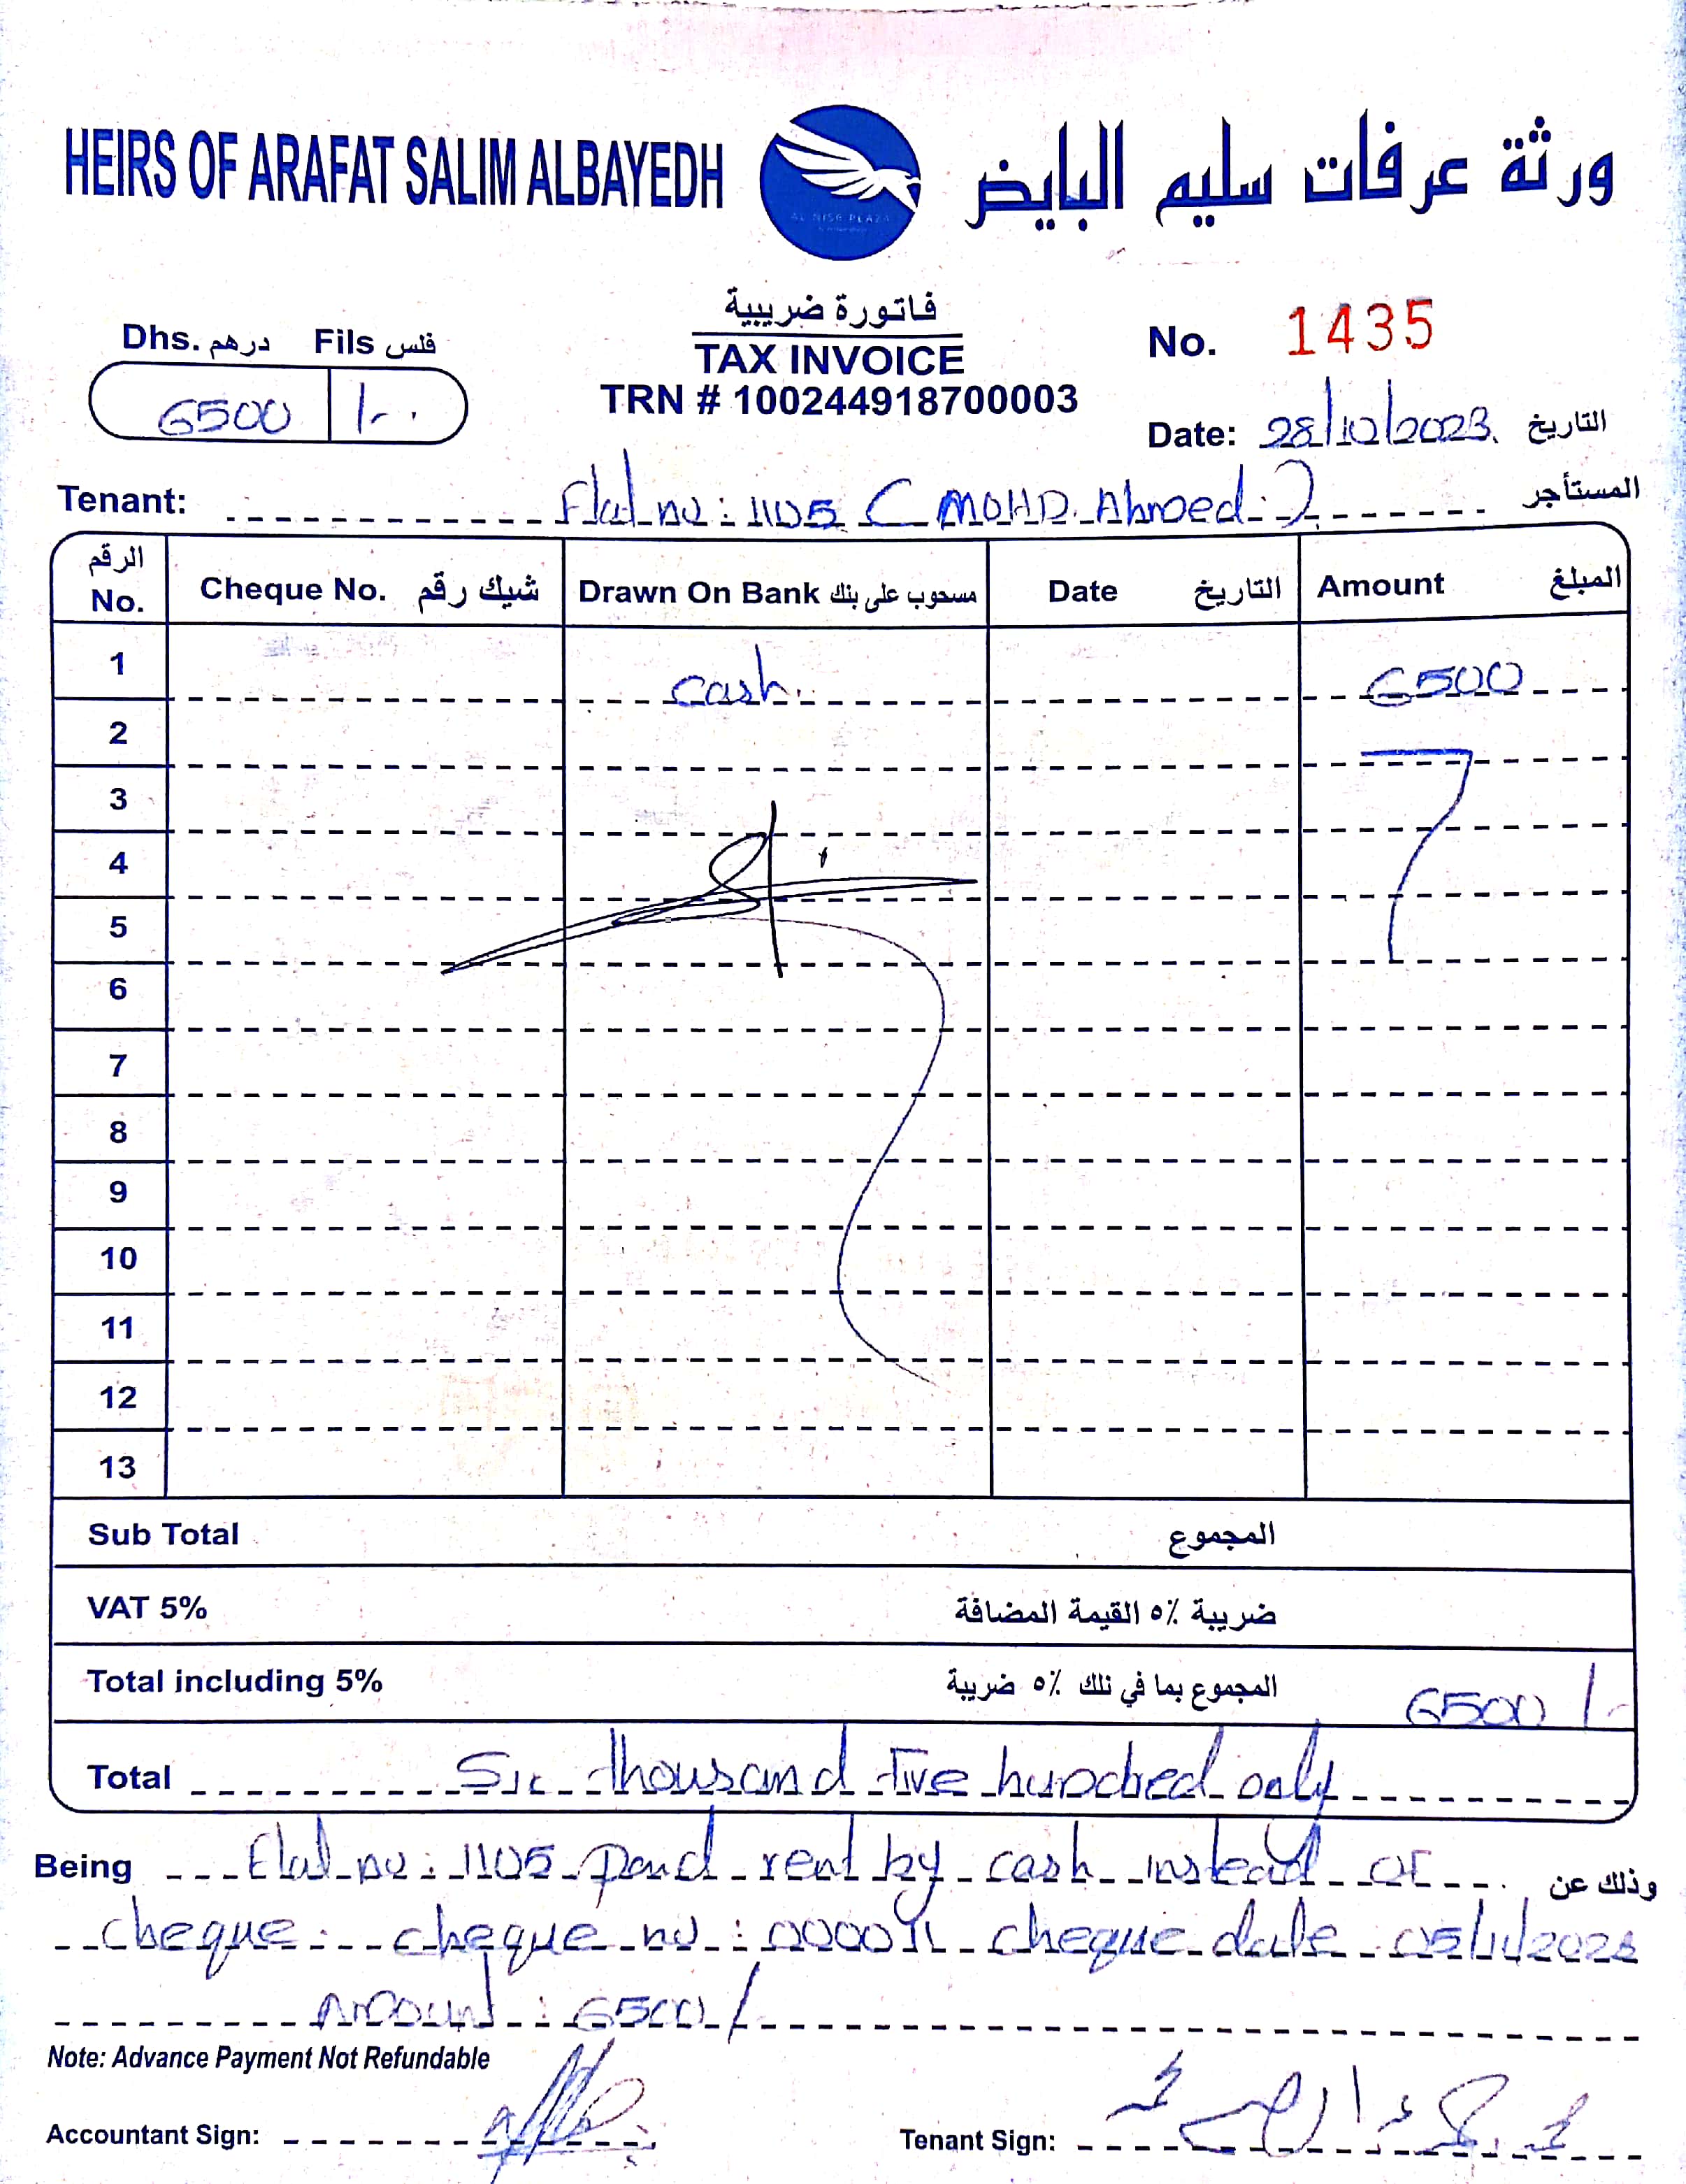 HEIRS OF ARAFAT SALIM ALBAYEDH
ورثة عرفات سليم البايض
AL NISR PLAZA
Dhs. درهم Fils فلس
6500 /-
فاتورة ضريبية
TAX INVOICE
TRN # 100244918700003
No. 1435
Date: 28/10/2023 التاريخ
Tenant: Flat no: 1105 ( MOHD. Ahmed ) المستأجر
الرقم No. Cheque No. شيك رقم Drawn On Bank مسحوب على بنك Date التاريخ Amount المبلغ
1 cash 6500
2
3
4
5
6
7
8
9
10
11
12
13
Sub Total المجموع
VAT 5% ضريبة ٥٪ القيمة المضافة
Total including 5% المجموع بما في ذلك ٥٪ ضريبة 6500/-
Total Six thousand Five hundred only
Being Flat no: 1105 paid rent by cash instead of وذلك عن
cheque. cheque no: cheque date 05/11/2023
Amount: 6500/
Note: Advance Payment Not Refundable
Accountant Sign:
Tenant Sign: